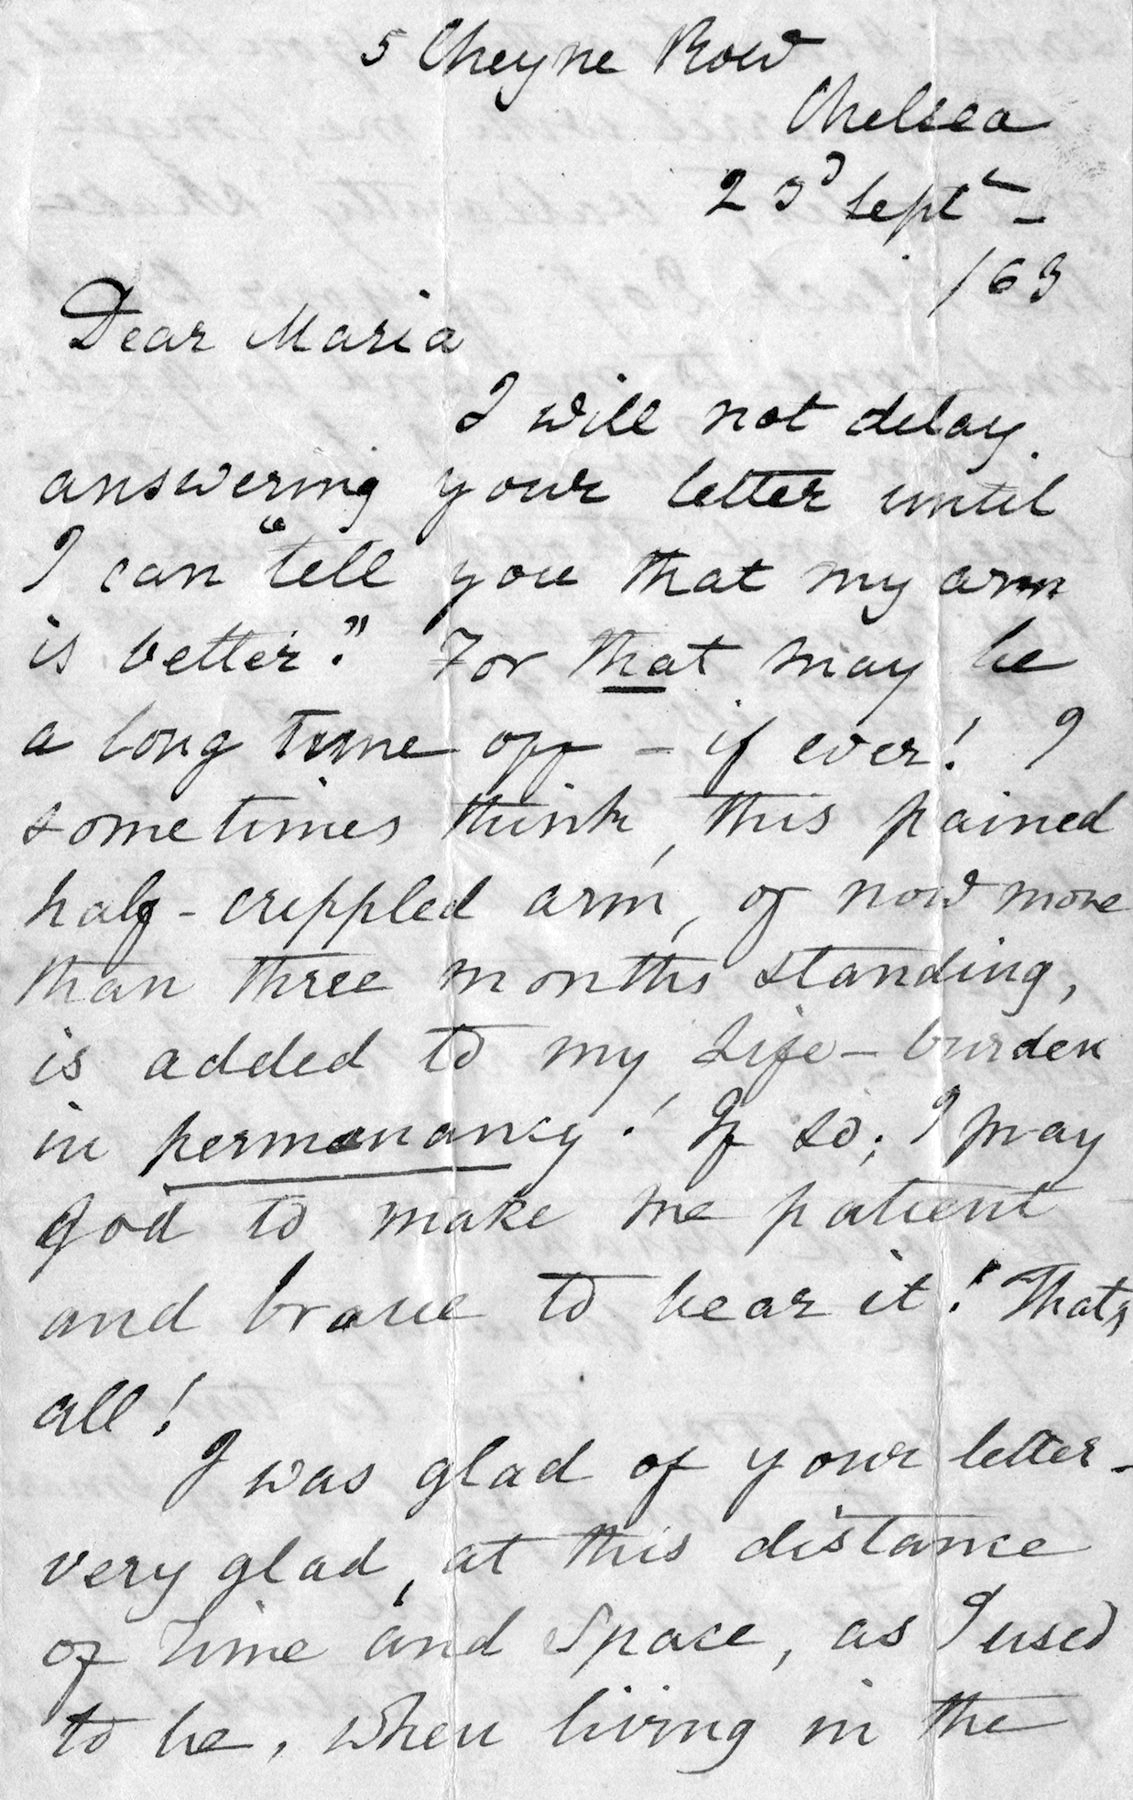 5 Cheyne Row
Chelsea
23d Sept–
/63
Dear Maria
I will not delay
answering your letter until
I can "tell you that my arm
is better." For that may be
a long time off – if ever! I
sometimes think, this pained
half-crippled arm, of now more
than three months standing,
is added to my Life-burden
in permanancy! If so; I pray
God to make me patient
and brave to bear it! Thats
all!
I was glad of your letter –
very glad, at this distance
of Time and Space, as I used
to be, when living in the